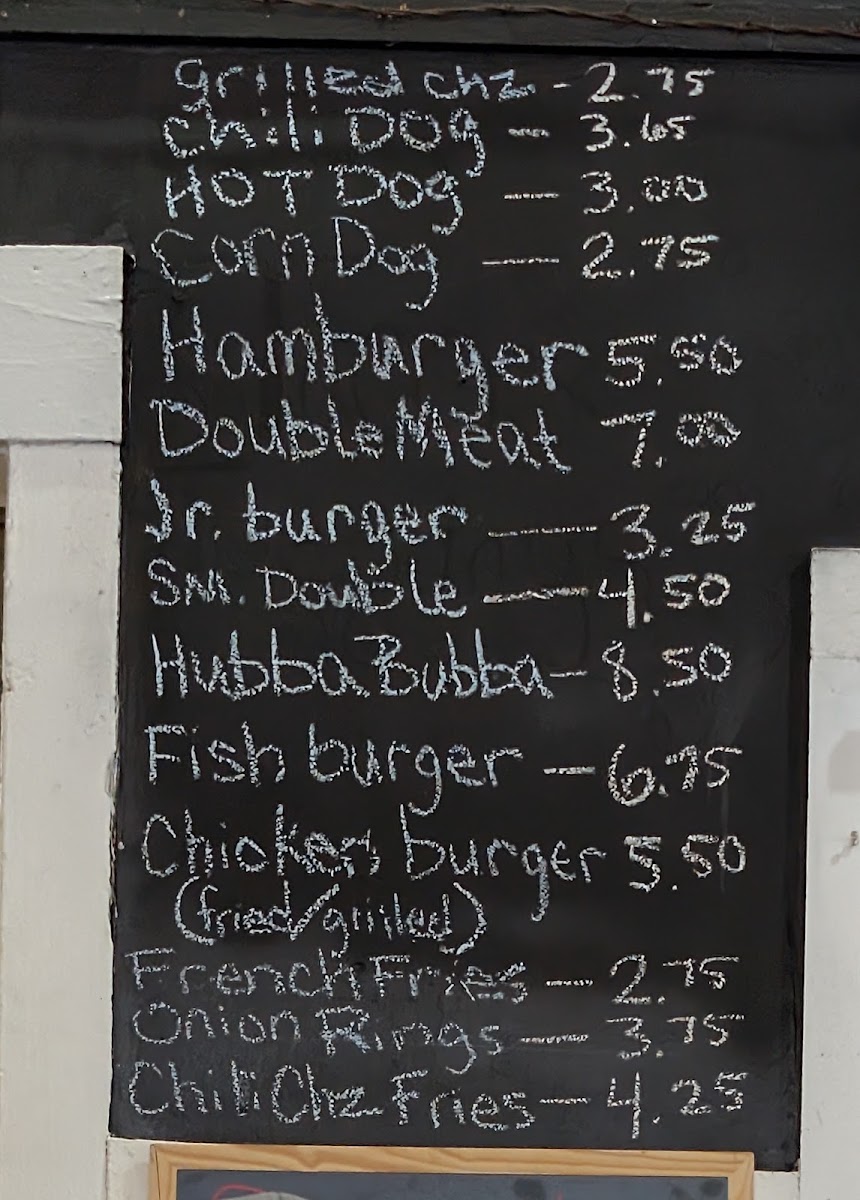 grilled chz - 2.75
Chili DOg - 3.65
HOT Dog - 3.00
Corn Dog - 2.75
Hamburger 5.50
Double Meat 7.00
Jr. burger - 3.25
Sm. Double - 4.50
Hubba Bubba - 8.50
Fish burger - 6.75
Chicken burger 5.50
(fried/grilled)
French Fries - 2.75
Onion Rings - 3.75
Chili Chz Fries - 4.25